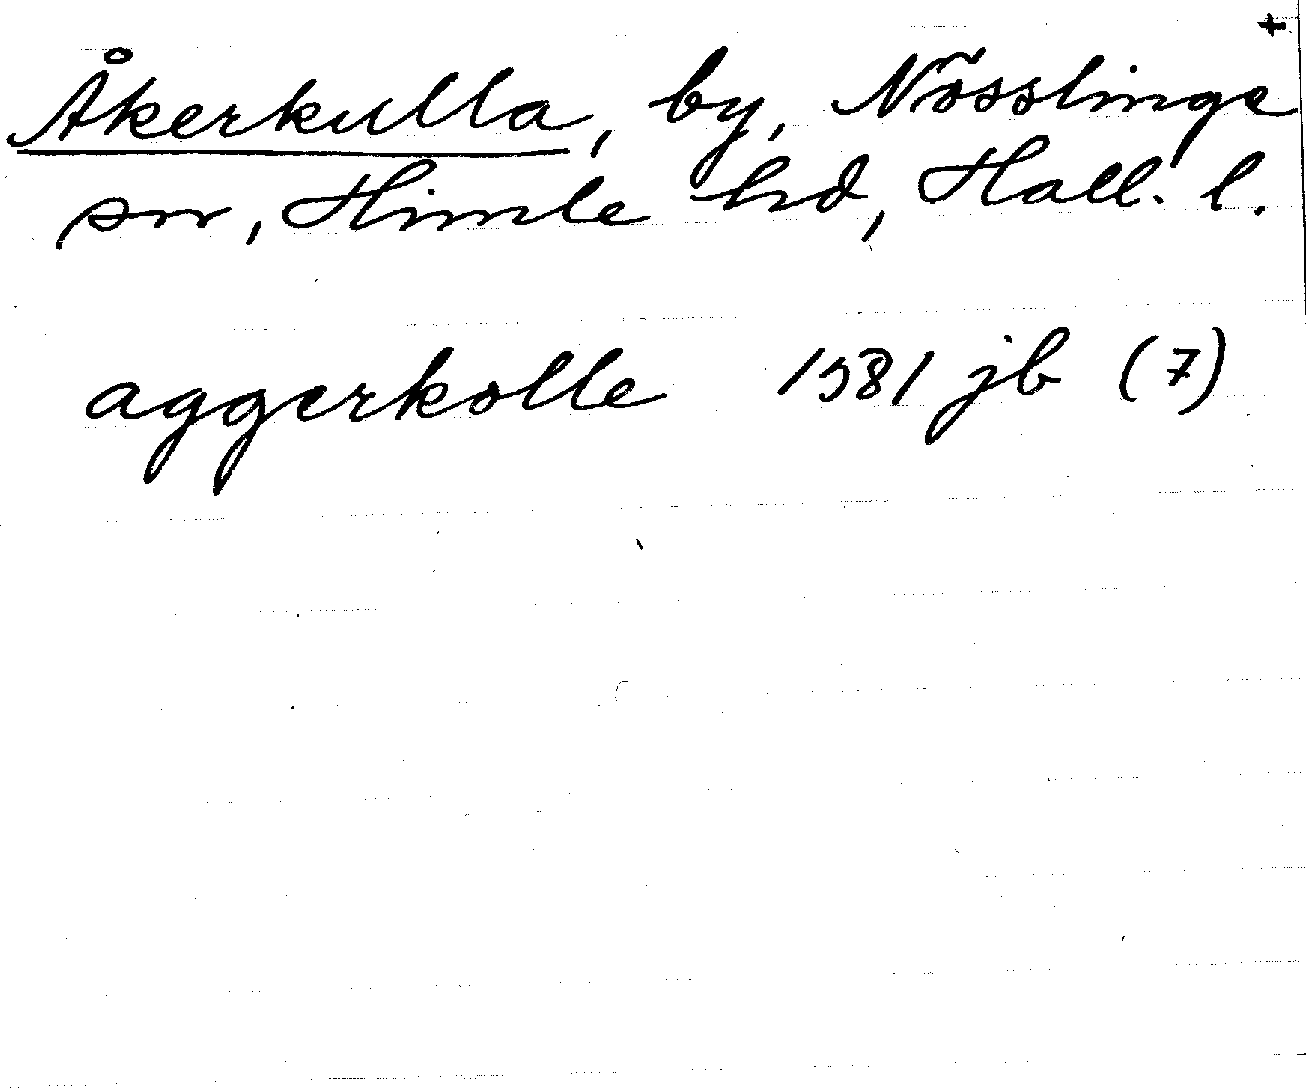 +
Åkerkulla, by, Nösslinge
sn, Himle hd, Hall. l.
aggerkolle 1581 jb (7)